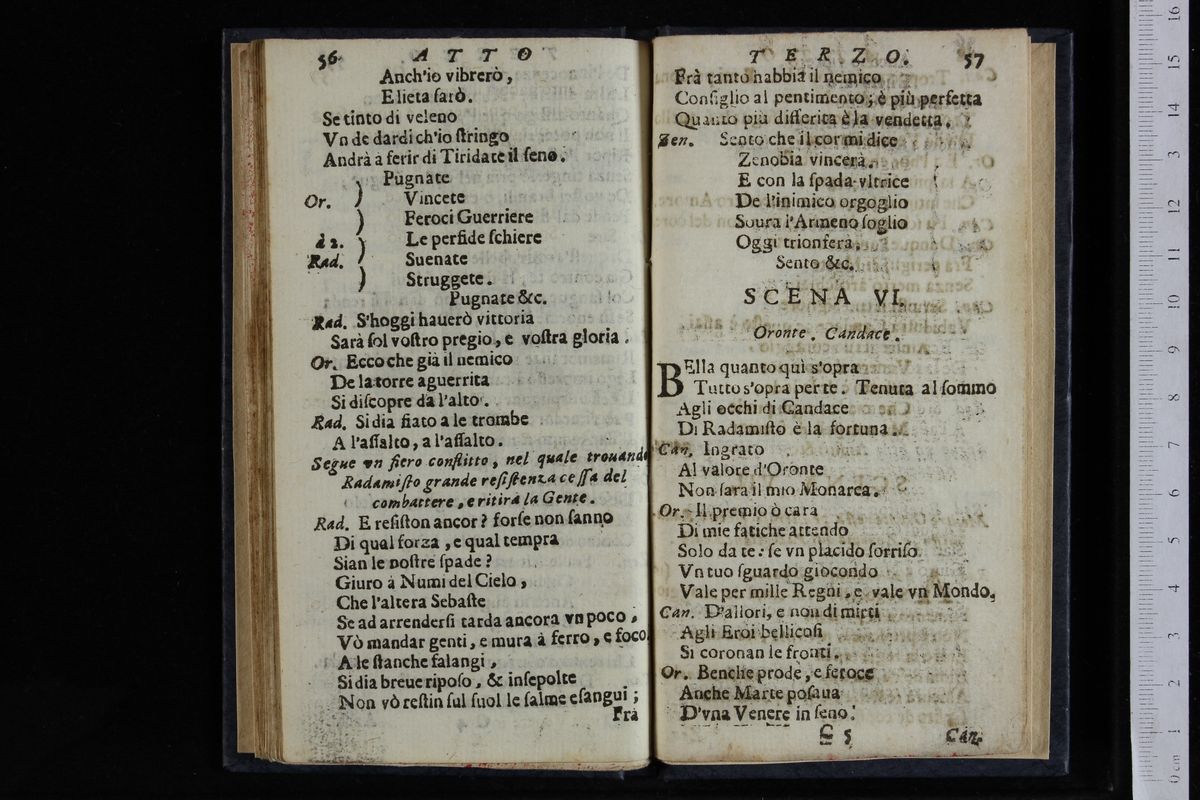 56 ATTO
Anch'io vibrerò,
E lieta sarò.
Se tinto di veleno
Vn de dardi ch'io ſtringo
Andrà a ferir di Tiridate il ſeno.
Pugnate
Or. ) Vincete
) Feroci Guerriere
à 2. ) Le perfide ſchiere
Rad. Suenate
) Struggete.
Pugnate &c.
Rad. S'hoggi hauerò vittoria
Sarà ſol voſtro pregio, e voſtra gloria.
Or. Ecco che già il nemico
De la torre aguerrita
Si diſcopre da l'alto.
Rad. Si dia fiato a le trombe
A l'aſſalto, a l'aſſalto.
Segue vn fiero conflitto, nel quale trouando
Radamiſto grande reſiſtenza ceſſa del
combattere, e ritira la Gente.
Rad. E reſiſton ancor? forſe non ſanno
Di qual forza, e qual tempra
Sian le noſtre ſpade?
Giuro à Numi del Cielo,
Che l'altera Sebaſte
Se ad arrenderſi tarda ancora vn poco,
Vò mandar genti, e mura à ferro, e foco.
A le ſtanche falangi,
Si dia breue ripoſo, & inſepolte
Non vò reſtin ſul ſuol le ſalme eſangui;
Frà
TERZO. 57
Frà tanto habbia il nemico
Conſiglio al pentimento; è più perfetta
Quanto più differita è la vendetta.
Zen. Sento che il cor mi dice
Zenobia vincerà.
E con la ſpada vltrice
De l'inimico orgoglio
Soura l'Armeno ſoglio
Oggi trionferà.
Sento &c.
SCENA VI.
Oronte. Candace.
BElla quanto quì s'opra
Tutto s'opra per te. Tenuta al ſommo
Agli occhi di Candace
Di Radamiſto è la fortuna.
Can. Ingrato
Al valore d'Oronte
Non ſarà il mio Monarca.
Or. Il premio ò cara
Di mie fatiche attendo
Solo da te: ſe vn placido ſorriſo
Vn tuo ſguardo giocondo
Vale per mille Regni, e vale vn Mondo.
Can. D'allori, e non di mirti
Agli Eroi bellicoſi
Si coronan le fronti.
Or. Benche prode, e feroce
Anche Marte poſaua
D'vna Venere in ſeno.
C 5 Can.